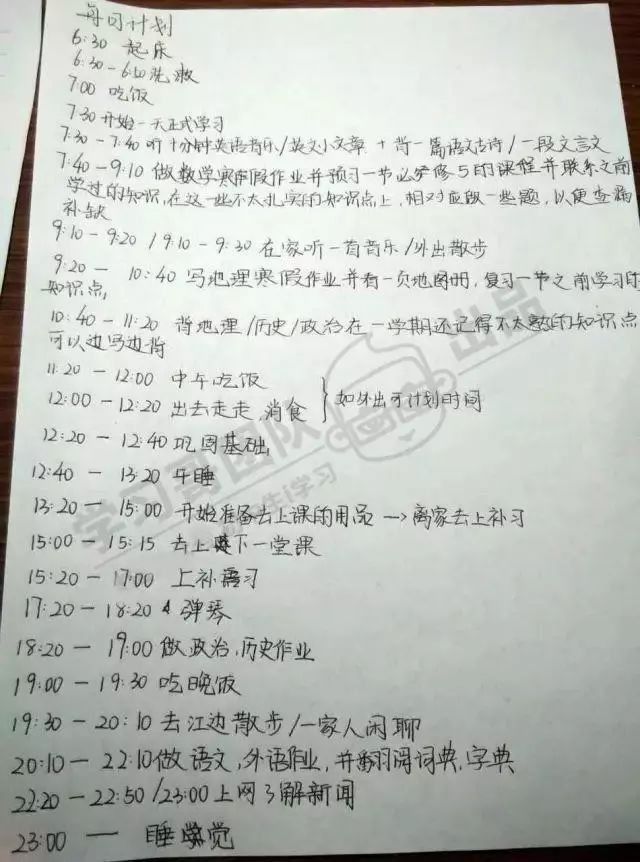 每日计划
6:30 起床
6:30-6:50洗漱
7:00 吃饭
7:30 开始一天正式学习
7:30-7:40 听十分钟英语音乐/英文小文章 + 背一篇语文古诗/一段文言文
7:40-9:10 做数学寒假作业并预习一节必修5的课程并联系之前
学过的知识,在这一些不太扎实的知识点上,相对应做一些题,以便查漏
补缺
9:10-9:20 /9:10-9:30 在家听一首音乐/外出散步
9:20- 10:40 写地理寒假作业并看一页地图册,复习一节之前学习的
知识点,
10:40-11:20 背地理/历史/政治在一学期还记得不太熟的知识点
可以边写边背
11:20 - 12:00 中午吃饭
12:00-12:20 出去走走,消食 } 如外出可计划时间
12:20-12:40 巩固基础
12:40 - 13:20 午睡
13:20 - 15:00 开始准备去上课的用品 → 离家去上补习
15:00-15:15 去上下一堂课
15:20-17:00 上补习
17:20-18:20 弹琴
18:20- 19:00 做政治,历史作业
19:00-19:30 吃晚饭
19:30-20:10 去江边散步/一家人闲聊
20:10-22:10做语文,外语作业,并翻阅词典,字典
22:20-22:50/23:00上网了解新闻
23:00 — 睡觉
学习哥团队
出品
学习